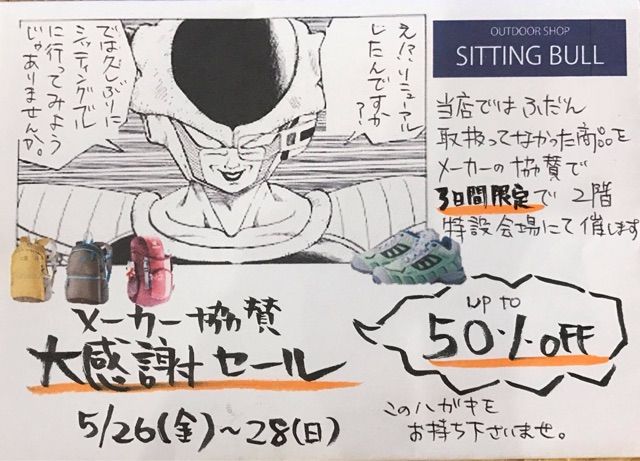 え!?リニューアル
したんですか
?!
では久しぶりに
シッティングブル
に行ってみよう
じゃありませんか。
OUTDOOR SHOP
SITTING BULL
当店ではふだん
取扱ってなかった商品を
メーカーの協賛で
3日間限定で2階
特設会場にて催します
メーカー協賛
大感謝セール
5/26(金)～28(日)
UP TO
50%OFF
このハガキを
お持ち下さいませ。